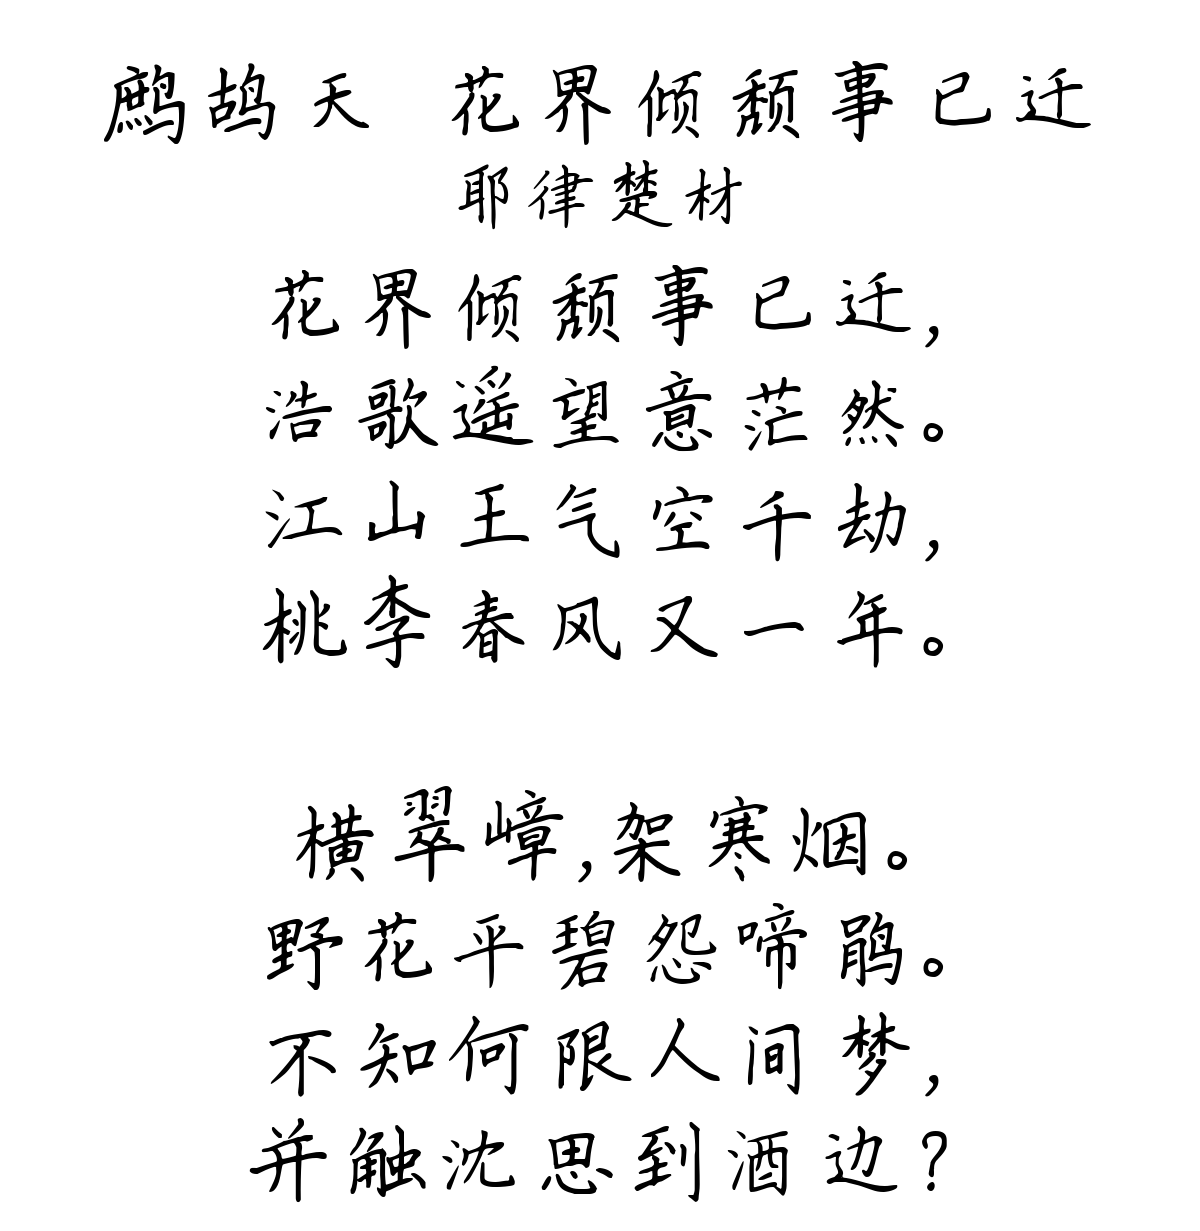 鹧鸪天 花界倾颓事已迁
耶律楚材
花界倾颓事已迁,
浩歌遥望意茫然。
江山王气空千劫,
桃李春风又一年。
横翠嶂,架寒烟。
野花平碧怨啼鹃。
不知何限人间梦,
并触沈思到酒边?